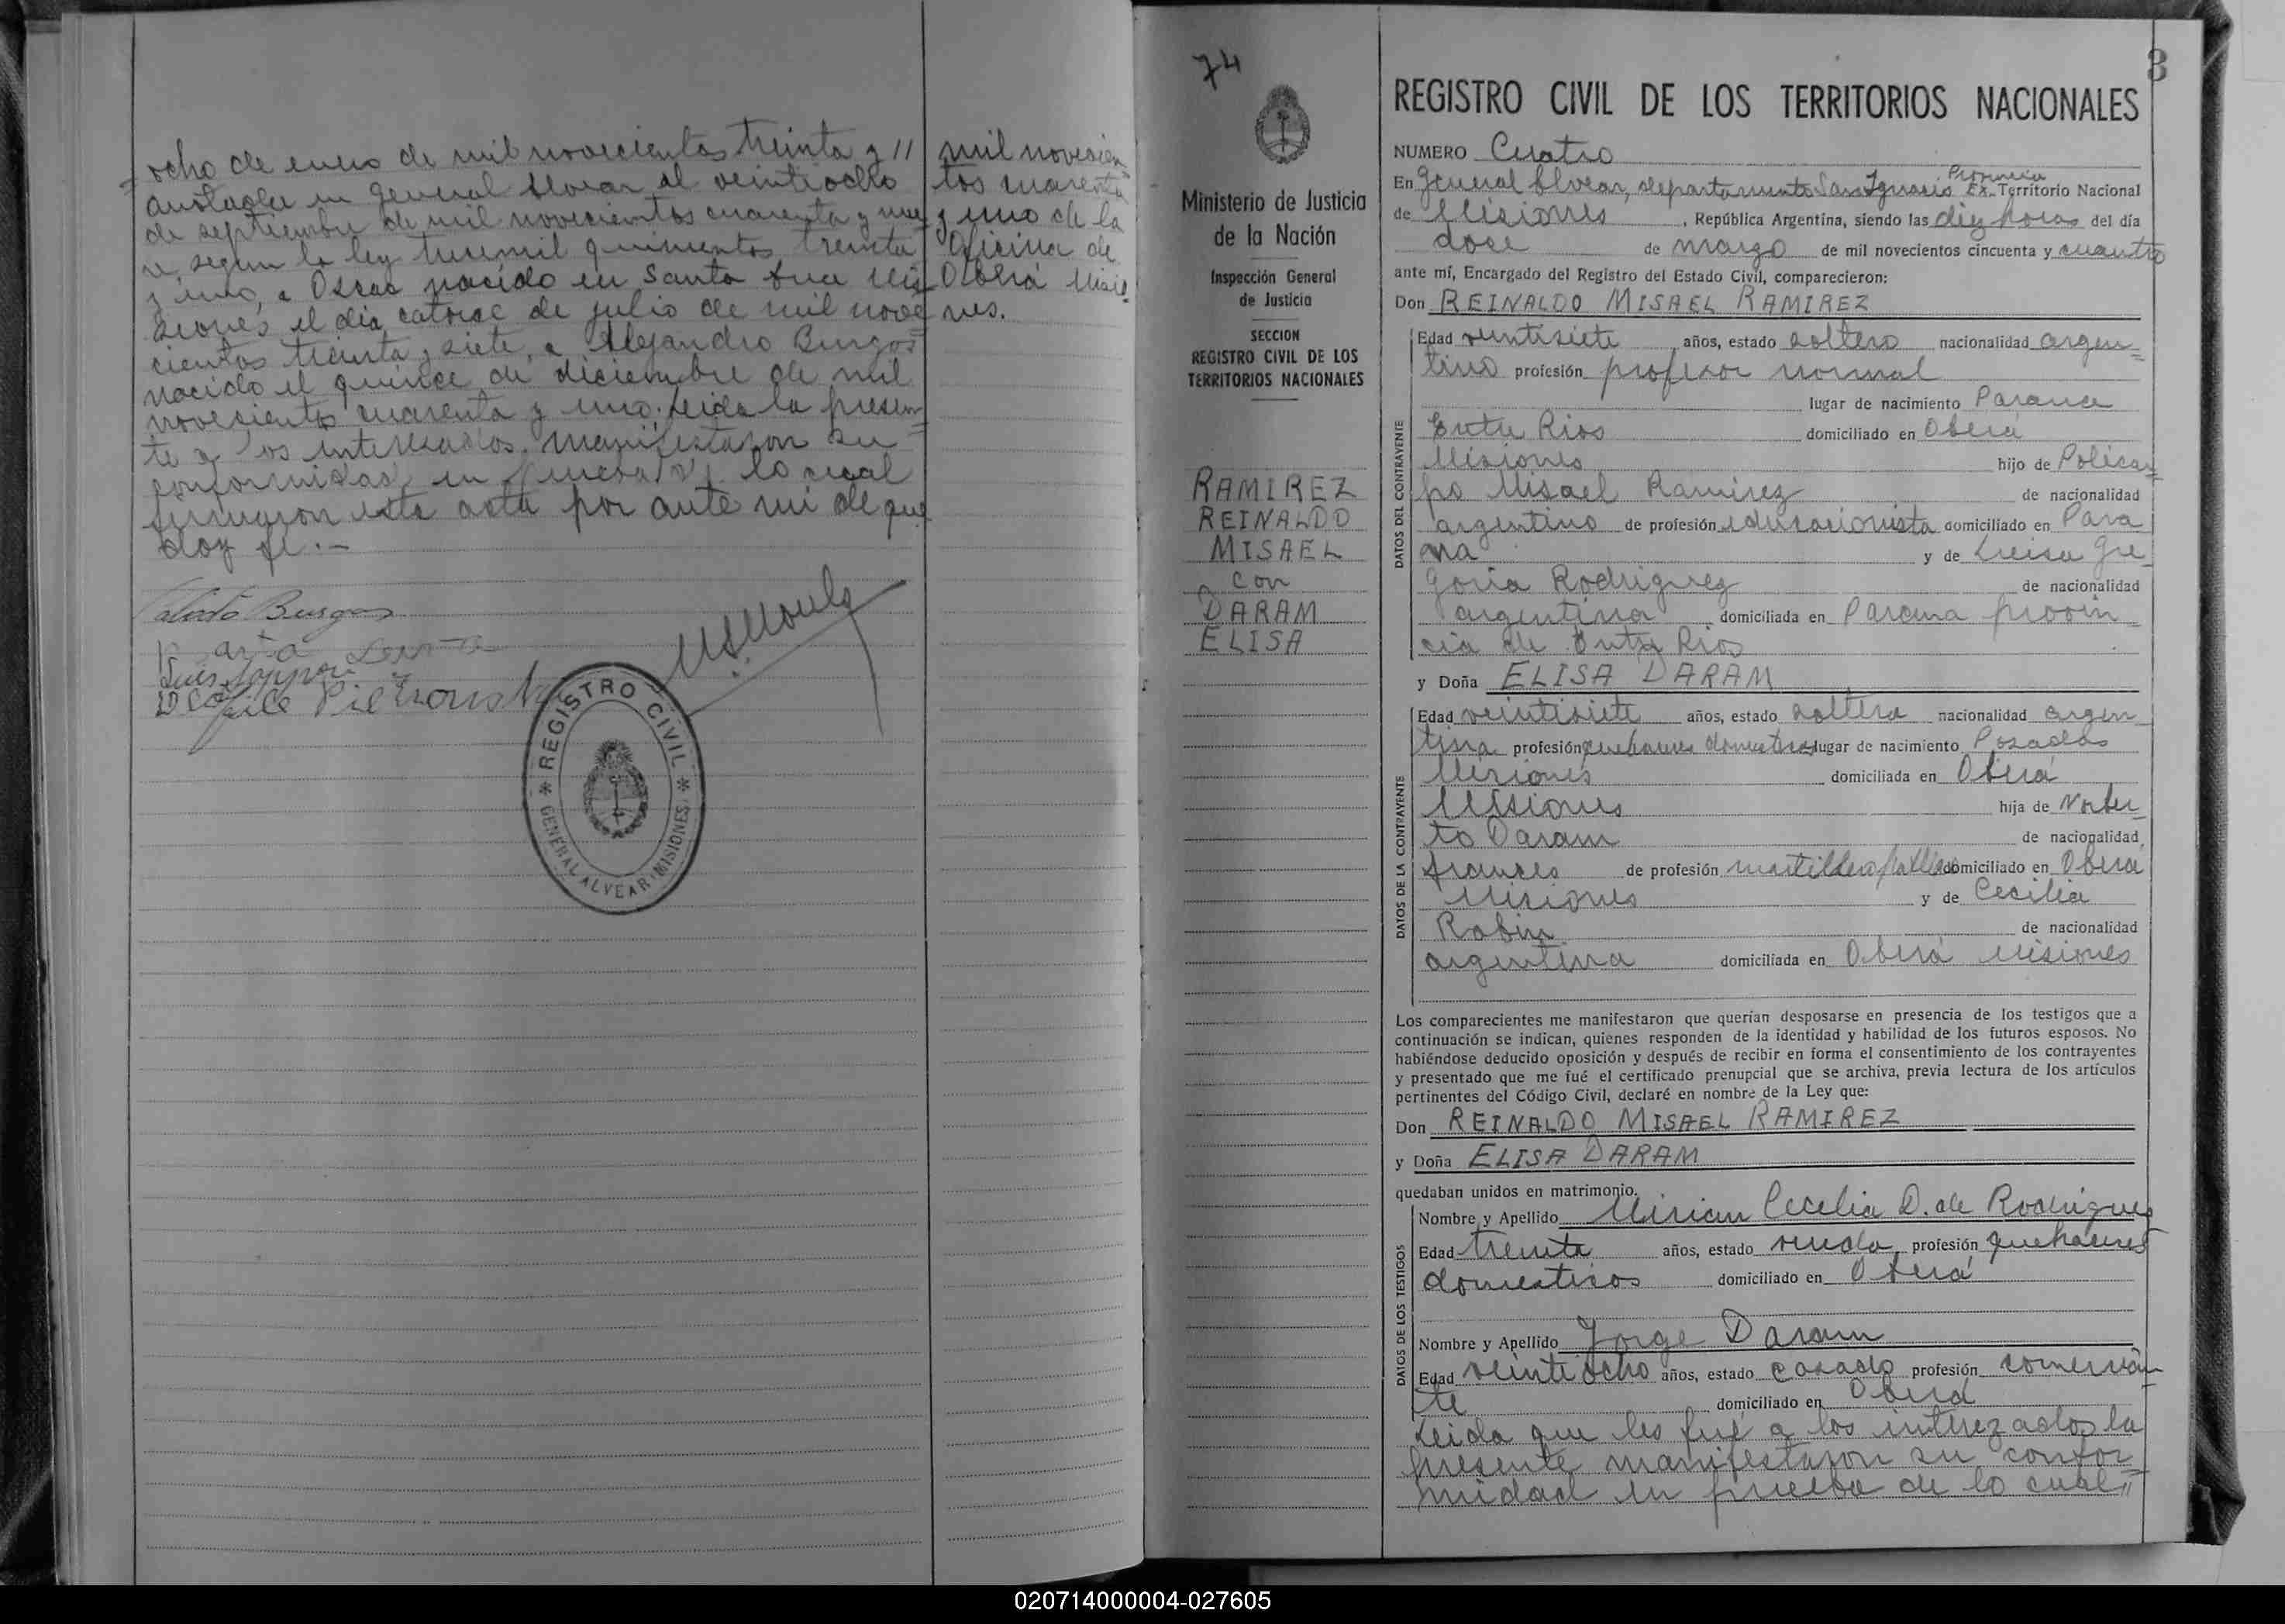 ocho de enero de mil novecientos treinta y //
anotado en general Alvear el veintiocho
de septiembre de mil novecientos cuarenta y nue
ve, según la ley trecemil quinientos treinta
y uno, a Oscar nacido en Santa Ana Mi
siones el día catorce de julio de mil nove
cientos treinta y siete, a Alejandro Burgos
nacido el quince de diciembre de mil
novecientos cuarenta y uno. Leida la presen
te a los interesados, manifestaron su
conformidad en prueba de lo cual
firmaron esta acta por ante mi de que
doy fe.-
mil novecien
tos cuarenta
y uno de la
Oficina de
Oberá Misio
nes.
Burgos
Luis
REGISTRO CIVIL
GENERAL ALVEAR (MISIONES)
74
Ministerio de Justicia
de la Nación
Inspección General
de Justicia
SECCION
REGISTRO CIVIL DE LOS
TERRITORIOS NACIONALES
RAMIREZ
REINALDO
MISAEL
con
DARAM
ELISA
3
REGISTRO CIVIL DE LOS TERRITORIOS NACIONALES
NUMERO Cuatro
Provincia
En General Alvear, departamento San Ignacio Ex. Territorio Nacional
de Misiones, República Argentina, siendo las diez horas del día
doce de marzo de mil novecientos cincuenta y cuantro
ante mí, Encargado del Registro del Estado Civil, comparecieron:
Don REINALDO MISAEL RAMIREZ
DATOS DEL CONTRAYENTE
Edad veintisiete años, estado soltero nacionalidad argen=
tino profesión profesor normal
lugar de nacimiento Parana
Entre Rios domiciliado en Oberá
Misiones hijo de Policar
po Misael Ramirez de nacionalidad
argentino de profesión educacionista domiciliado en Para
na y de Luisa Gre
goria Rodriguez de nacionalidad
argentina domiciliada en Parana provin
cia de Entre Rios
y Doña ELISA DARAM
DATOS DE LA CONTRAYENTE
Edad veintisiete años, estado soltera nacionalidad argen
tina profesión quehaceres domesticos lugar de nacimiento Posadas
Misiones domiciliada en Oberá
Misiones hija de Norber
to Daram de nacionalidad
frances de profesión domiciliado en Oberá
Misiones y de Cecilia
Robin de nacionalidad
argentina domiciliada en Oberá Misiones
Los comparecientes me manifestaron que querían desposarse en presencia de los testigos que a
continuación se indican, quienes responden de la identidad y habilidad de los futuros esposos. No
habiéndose deducido oposición y después de recibir en forma el consentimiento de los contrayentes
y presentado que me fué el certificado prenupcial que se archiva, previa lectura de los artículos
pertinentes del Código Civil, declaré en nombre de la Ley que:
Don REINALDO MISAEL RAMIREZ
y Doña ELISA DARAM
quedaban unidos en matrimonio.
DATOS DE LOS TESTIGOS
Nombre y Apellido Mirian Cecilia D. de Rodriguez
Edad treinta años, estado viuda profesión quehaceres
domesticos domiciliado en Oberá
Nombre y Apellido Jorge Daram
Edad veintiocho años, estado casado profesión comercian
te domiciliado en Oberá
Leida que les fué a los interezados la
presente manifestaron su confor
midad en prueba de lo cual //
020714000004-027605